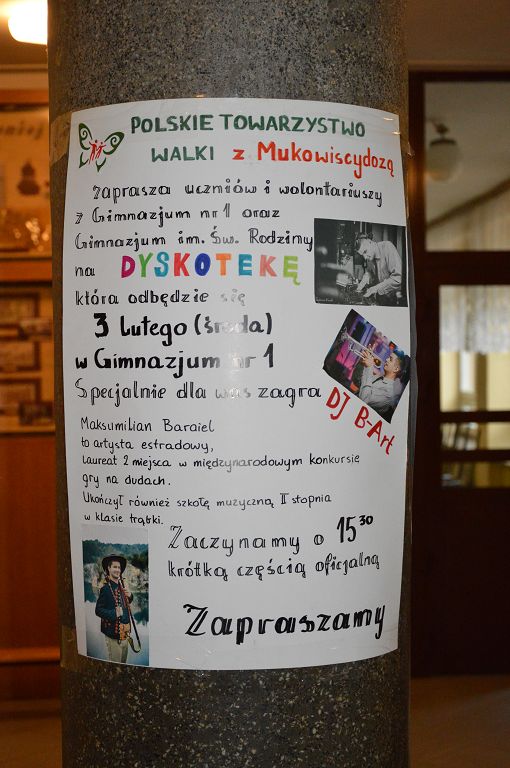 POLSKIE TOWARZYSTWO
WALKI z Mukowiscydozą
zaprasza uczniów i wolontariuszy
z Gimnazjum nr 1 oraz
Gimnazjum im. Św. Rodziny
na DYSKOTEKĘ
która odbędzie się
3 lutego (środa)
w Gimnazjum nr 1
Specjalnie dla was zagra
DJ B-Art
Maksumilian Baraiel
to artysta estradowy,
laureat 2 miejsca w międzynarodowym konkursie
gry na dudach.
Ukończył również szkołę muzyczną II stopnia
w klasie trąbki.
Zaczynamy o 15³⁰
krótką częścią oficjalną
Zapraszamy